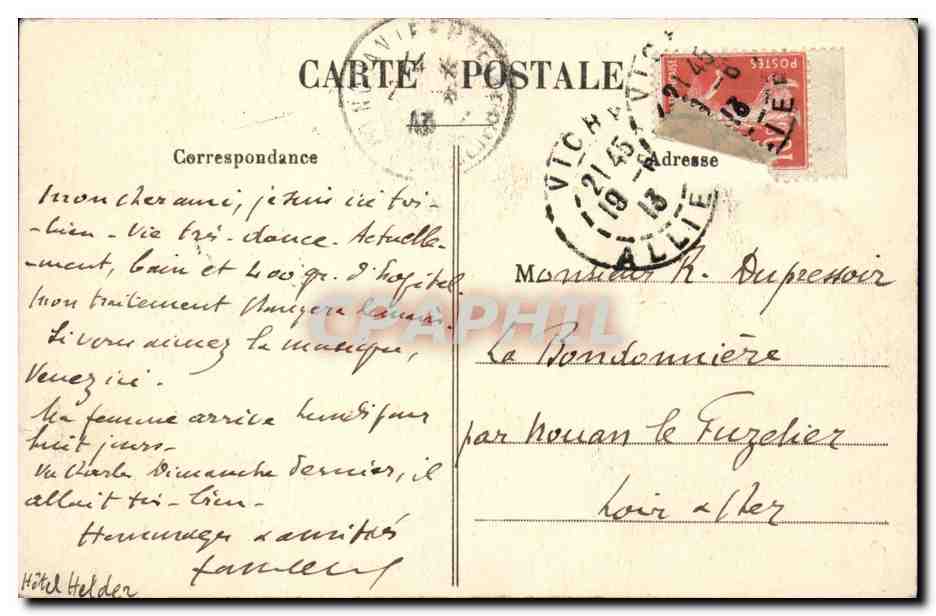 CARTE POSTALE
Correspondance
Adresse
Mon cher ami, je suis ici très-
-bien - Vie très-douce. Actuelle-
-ment, bain et 400 gr. d'Hopital.
Mon traitement changera demain.
Si vous aimez la musique,
Venez ici.
Ma femme arrive lundi pour
huit jours-
Vu Charles Dimanche dernier, il
allait très-bien-
Hommages & amitiés
Hôtel Helder
Monsieur R. Dupressoir
La Bondonnière
par Nouan le Fuzelier
Loir & Cher
VICHY
21 45
19 -6
13
ALLIER
VICHY
21 45
-6
13
POSTES
10c
CPAPHIL